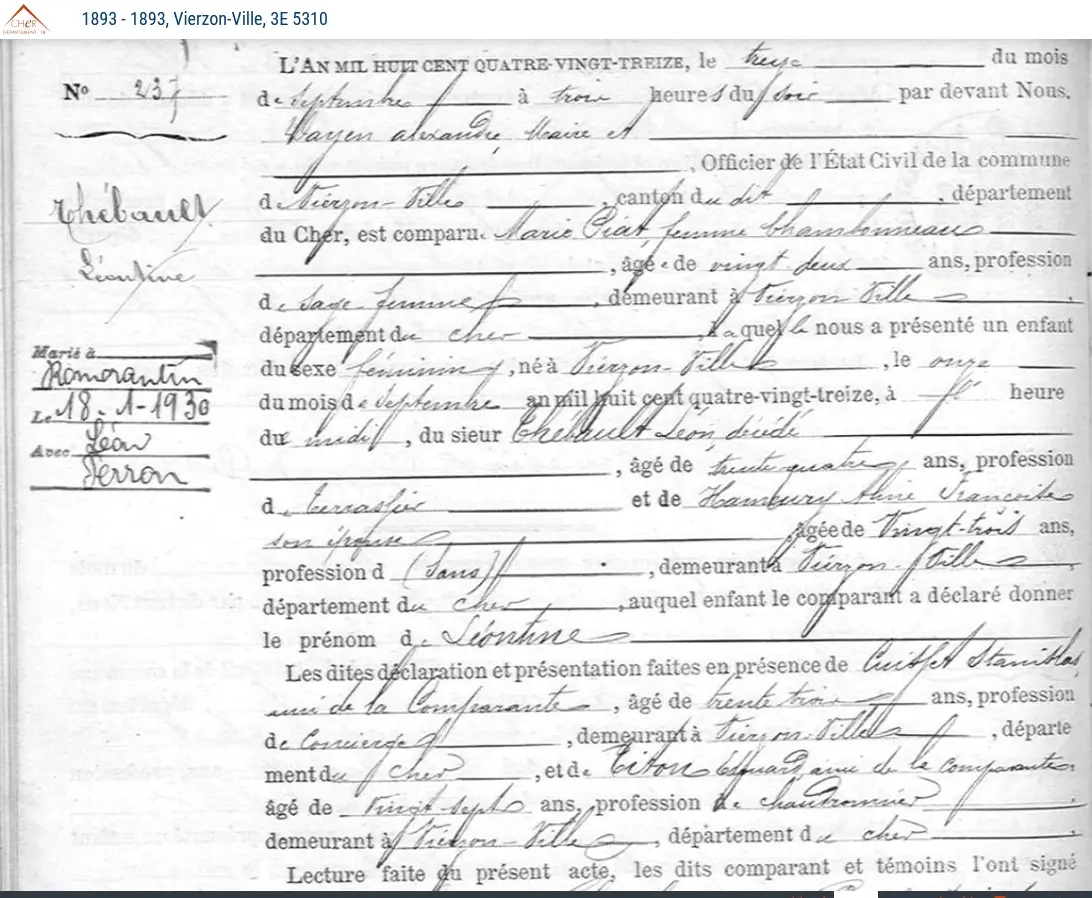 CHER
DÉPARTEMENT 18
1893 - 1893, Vierzon-Ville, 3E 5310
L'AN MIL HUIT CENT QUATRE-VINGT-TREIZE, le treize du mois
N° 237
de Septembre à trois heures du soir par devant Nous,
alexandre Maire et
, Officier de l'État Civil de la commune
de Vierzon-Ville, canton du dit, département
Thébault
Léontine
du Cher, est comparu Marie Piat, femme Chambonneau
, âgée de vingt deux ans, profession
de Sage femme, demeurant à Vierzon Ville,
département du Cher, laquelle nous a présenté un enfant
Marié à
Romorantin
Le 18-1-1930
Avec Léon
Perron
du sexe féminin, né à Vierzon-Ville, le onze
du mois de Septembre an mil huit cent quatre-vingt-treize, à heure
du midi, du sieur Thébault Léon, décédé
, âgé de trente quatre ans, profession
de terrassier et de Aline Françoise
son épouse âgée de Vingt-trois ans,
profession d (Sans), demeurant à Vierzon-Ville,
département du Cher, auquel enfant le comparant a déclaré donner
le prénom de Léontine
Les dites déclaration et présentation faites en présence de Stanislas
ami de la Comparante, âgé de trente trois ans, profession
de Concierge, demeurant à Vierzon-Ville, départe
ment du Cher, et de Titon Edouard, ami de la comparante,
âgé de vingt sept ans, profession de chaudronnier,
demeurant à Vierzon-Ville, département du Cher.
Lecture faite du présent acte, les dits comparant et témoins l'ont signé